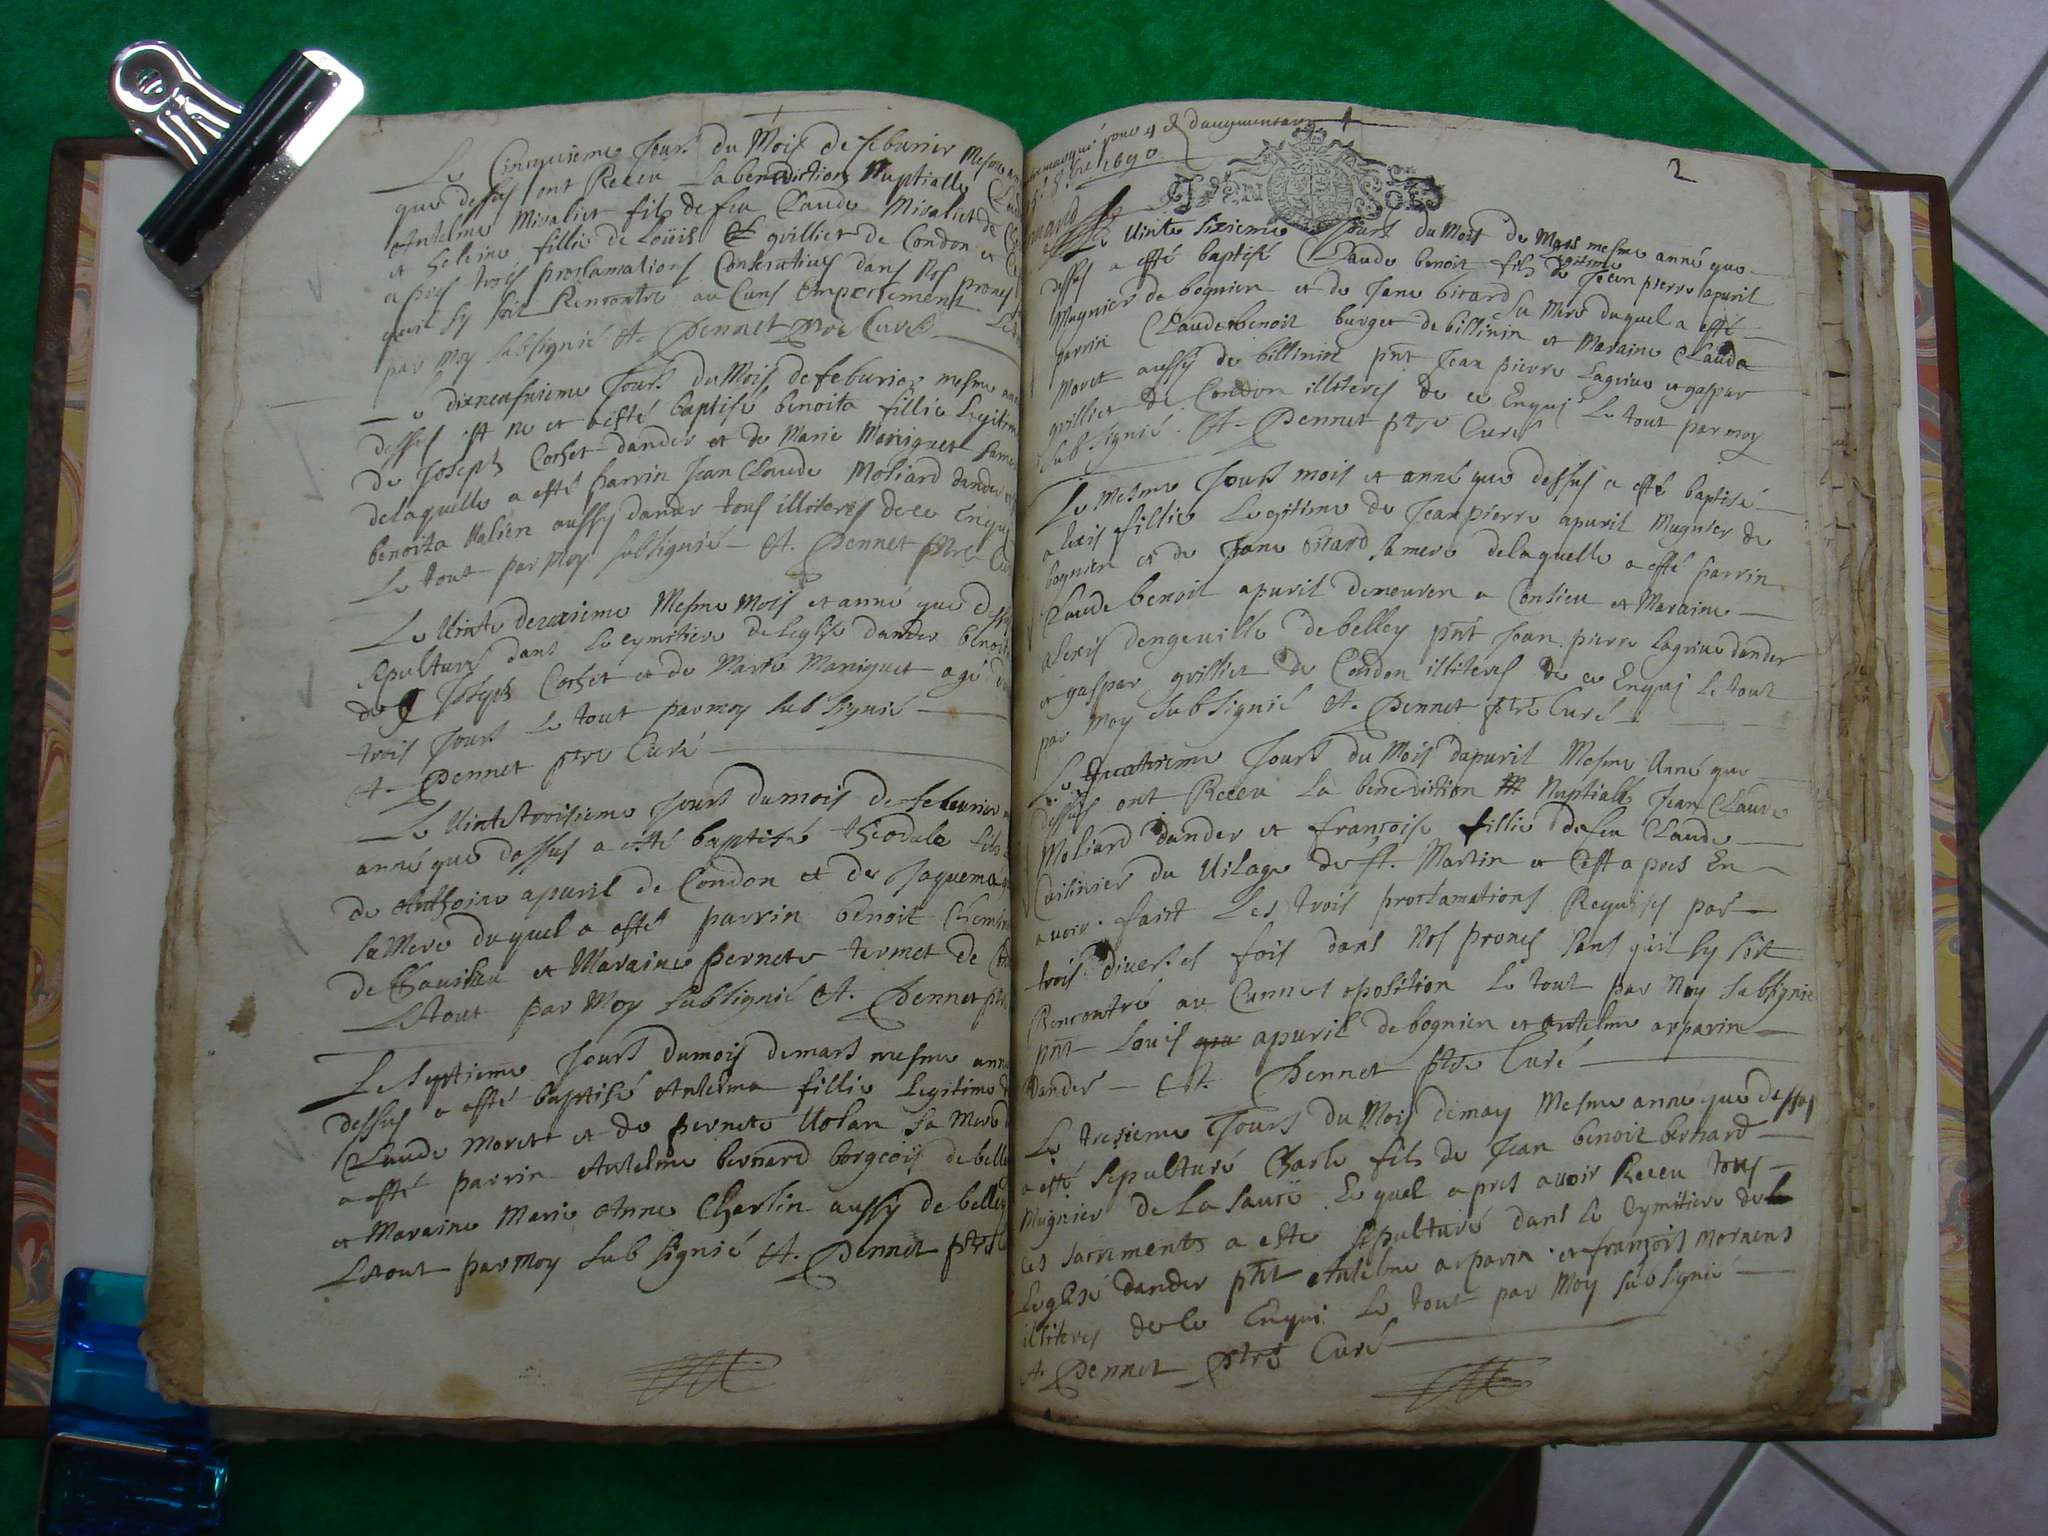 Le Cinquieme Jours du Mois de feburier Mesme
que dessus ont Receu La benediction Nuptialle
Antelme Mivaliet fils de feu Claude Mivaliet de
et heleine fillie de Loüis grilliet de Condon et
apres trois proclamations Consecutives dans Nos prones
quil sy soit Rencontre au Cuns Empechement Le
par Moy subsignié A. Dennet ptre Curé
Le dixneufvieme Jours du Mois de feburier mesme
dessus est ne et a esté baptisé benoita fillie Legitime
de Joseph Cochet dander et de Marie Maniguet
delaquelle a esté parrin Jean Claude Moliard dander
benoita Valien aussy dander tous illiteres de ce Enquis
Le tout par Moy subsignié A. Dennet ptre Curé
Le Vinte deuxieme Mesme Mois et anné que dessus
sepulture dans Le cymitiere de Leglise dander benoita
de Joseph Cochet et de Marie Maniguet agé
trois Jours Le tout par moy subsignié
A. Dennet ptre Curé
Le Vinte troisieme Jours du mois de feburier
anné que dessus a esté baptisé theodule fils
de Anthoine apuril de Condon et de Jaquema
sa Mere duquel a esté parrin benoit
de et Maraine pernete termet de
Le tout par Moy subsignié A. Dennet ptre
Le septieme Jours du mois de mars mesme anné
dessus a esté baptisé Antelma fillie Legitime
Claude Moret et de pernete Volan sa Mere
a esté parrin Antelme bernard borgeois de belley
et Maraine Marie Anne Charlin aussy de belley
Le tout par Moy subsignié A. Dennet ptre
marqué pour 4 d daugmentation
1690
2
Le Vinte sixieme Jours du Mois de Mars mesme anné que
dessus a esté baptisé Claude benoit fils Legitime de Jean pierre apuril
Mugnier de bognien et de Jane birard sa Mere duquel a esté
parrin Claude benoit burget de billinin et Maraine Clauda
Moret aussy de billinin pnt Jean pierre Lagrive et gaspar
grilliet de Condon illiteres de ce Enqui Le tout par moy
subsignié A. Dennet ptre Curé
Le Mesme Jours mois et anné que dessus a esté baptisé
alexis fillie Legitime de Jean pierre apuril Mugnier de
bognien et de Jane birard sa mere delaquelle a esté parrin
Claude benoit apuril demeuren a Consieu et Maraine
alexis dengeville de belley pnt Jean pierre Lagrive dander
et gaspar grilliet de Condon illiteres de ce Enqui Le tout
par Moy subsignié A. Dennet ptre Curé
Le Quatrieme Jours du Mois dapuril Mesme Anné que
dessus ont Receu La benediction Nuptialle Jean Claude
Moliard dander et françoise fillie de feu Claude
du Vilage de st. Martin et Cest apres En
avoir faict Les trois proclamations Requises par
trois diverses fois dans Nos prones sans quil sy soit
Rencontré au Cunnes oposition Le tout par Moy subsignié
pnt Louis apuril de bognien et antelme arparin
dander A. Dennet ptre Curé
Le tresieme Jours du Mois de may Mesme anné que dessus
a esté sepulturé Charle fils de Jean benoit bernard
Mugnier de La sauci Lequel apres avoir Receu tous
les sacrements a esté sepulturé dans Le Cymitiere de
Leglise dander pnt Antelme arparin et françois Mornens
illiteres de ce Enqui Le tout par Moy subsignié
A. Dennet ptre Curé